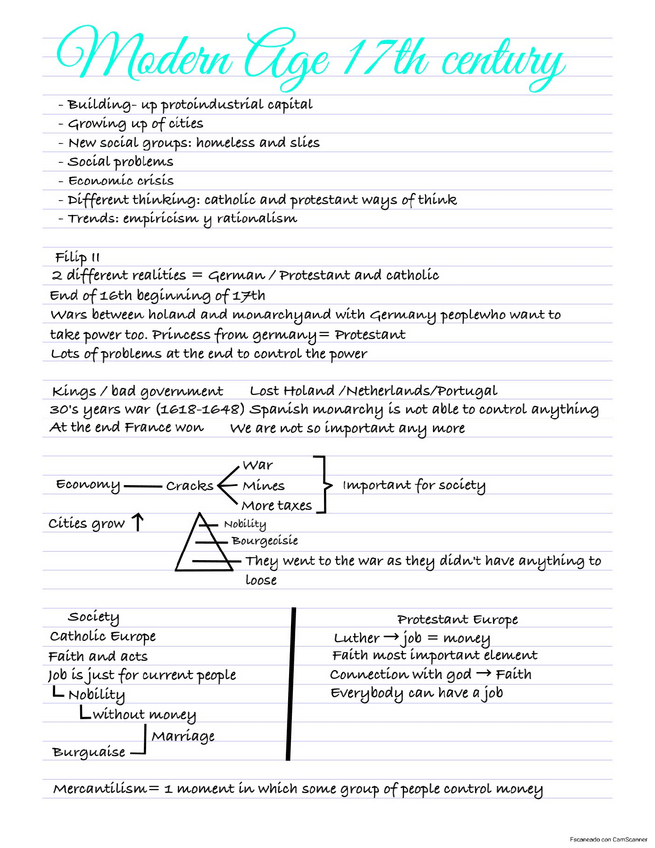 Modern Age 17th century
- Building- up protoindustrial capital
- Growing up of cities
- New social groups: homeless and slies
- Social problems
- Economic crisis
- Different thinking: catholic and protestant ways of think
- Trends: empiricism y rationalism
Filip II
2 different realities = German / Protestant and catholic
End of 16th beginning of 17th
Wars between holand and monarchyand with Germany peoplewho want to
take power too. Princess from germany= Protestant
Lots of problems at the end to control the power
Kings / bad government Lost Holand /Netherlands/Portugal
30's years war (1618-1648) Spanish monarchy is not able to control anything
At the end France won We are not so important any more
War
Economy Cracks Mines Important for society
More taxes
Cities grow ↑ Nobility
Bourgeoisie
They went to the war as they didn't have anything to
loose
Society Protestant Europe
Catholic Europe Luther → job = money
Faith and acts Faith most important element
Job is just for current people Connection with god → Faith
Nobility Everybody can have a job
without money
Marriage
Burguaise
Mercantilism= 1 moment in which some group of people control money
Escaneado con CamScanner